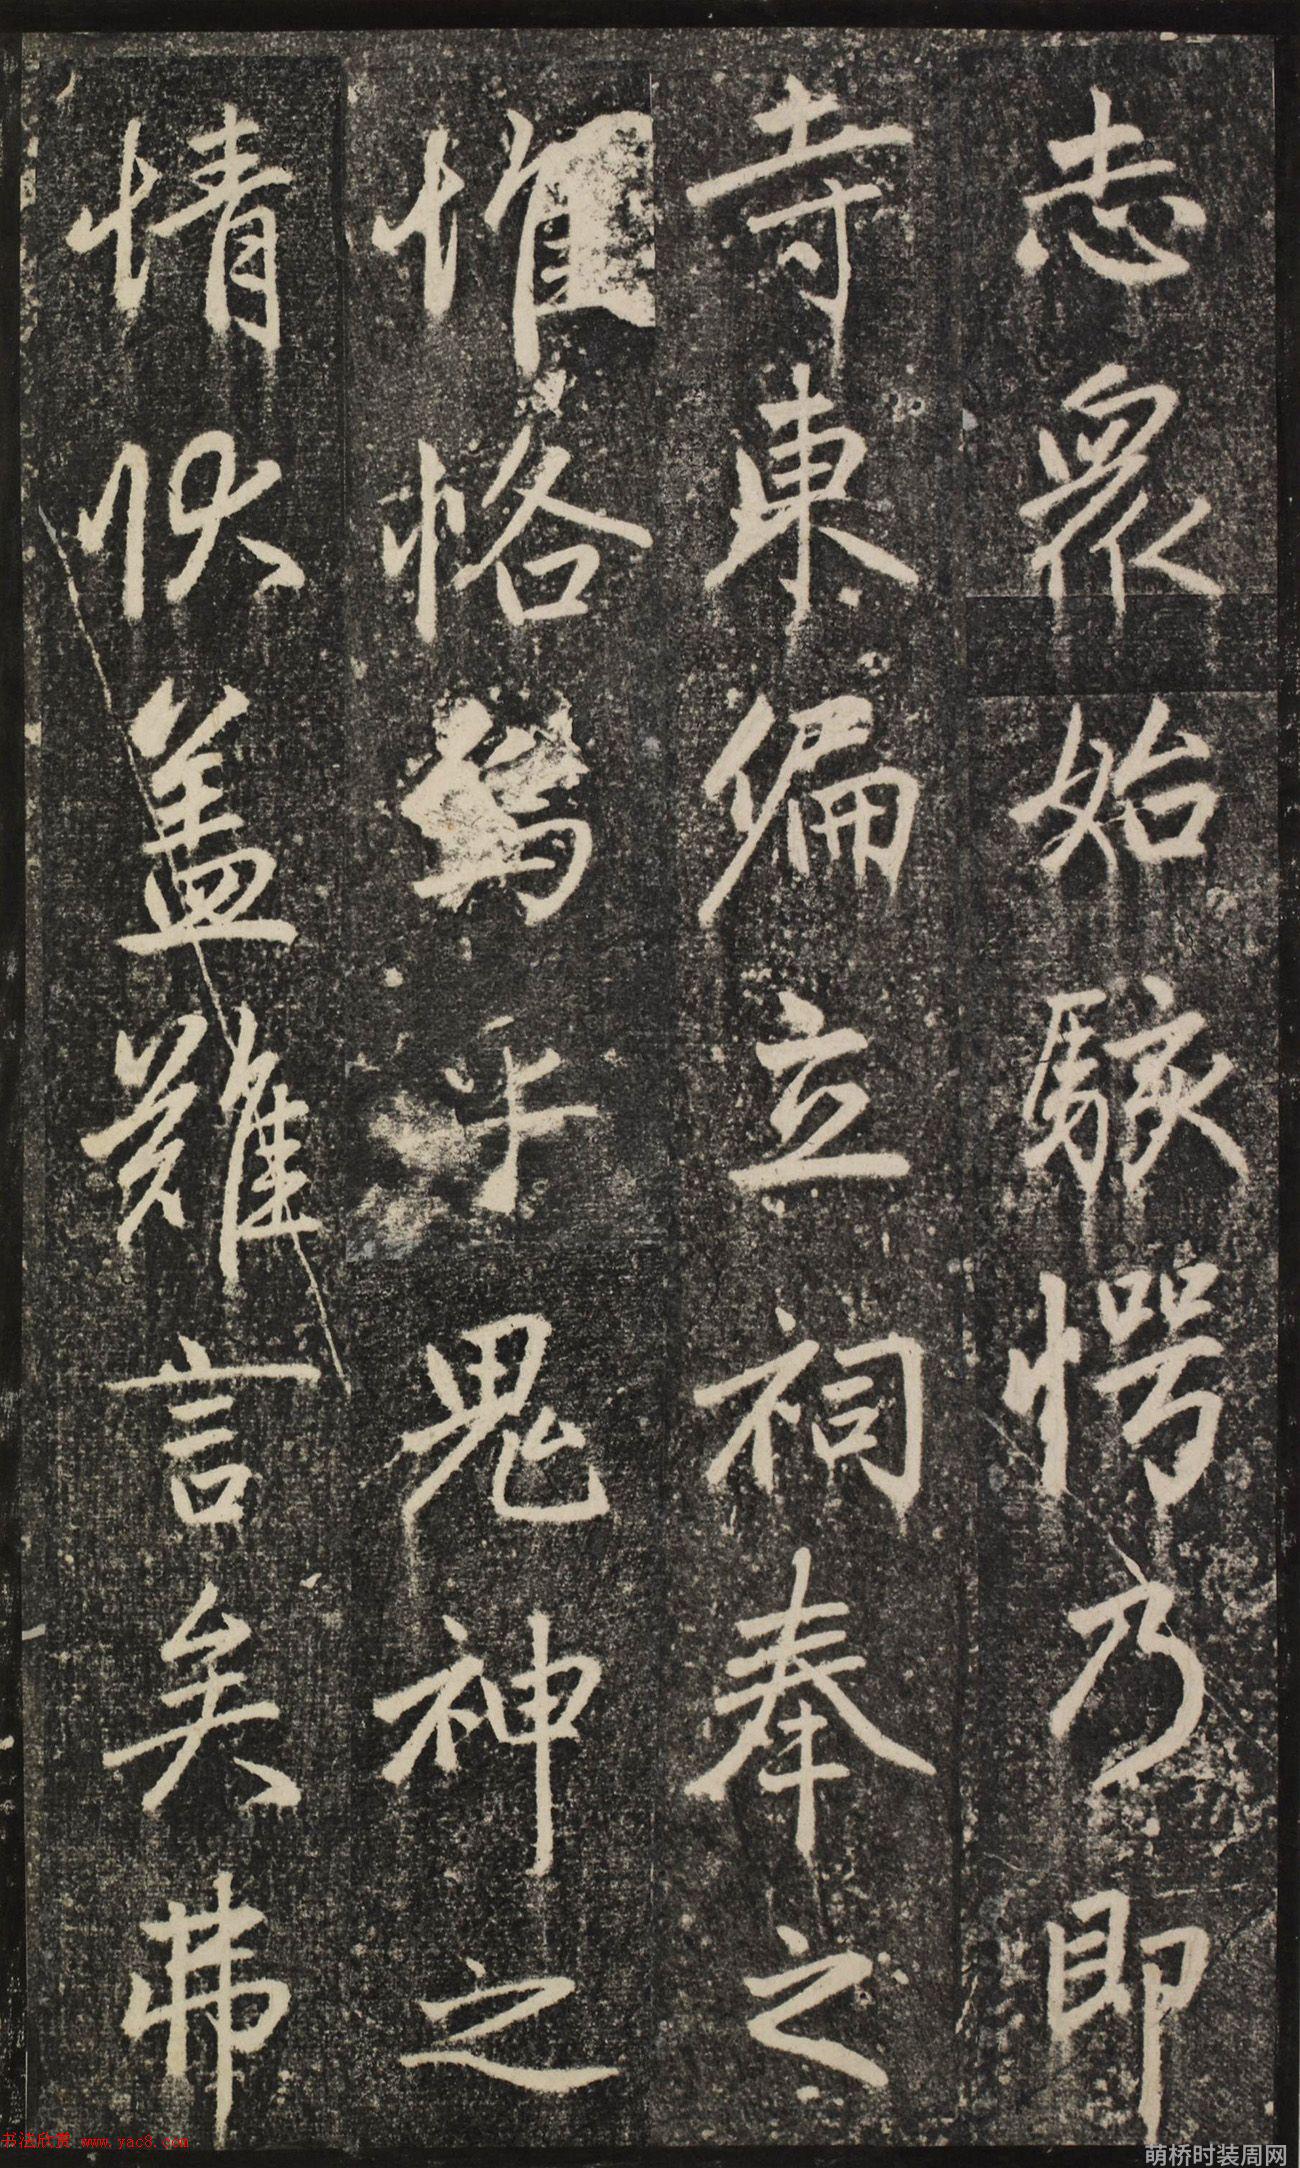 志眾始駭愕乃即
寺東偏立祠奉之
惟恪嗚乎鬼神之
情狀蓋難言矣弗
书法欣赏 www.yac8.com
萌桥时装周网